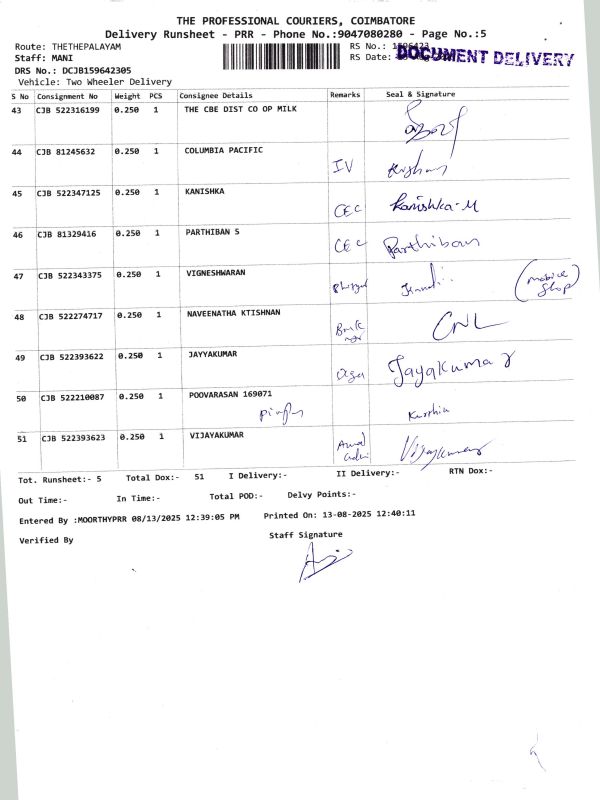 THE PROFESSIONAL COURIERS, COIMBATORE
Delivery Runsheet - PRR - Phone No.:9047080280 - Page No.:5
Route: THETHEPALAYAM
RS No.:
Staff: MANI
RS Date:
DOCUMENT DELIVERY
DRS No.: DCJB159642305
Vehicle: Two Wheeler Delivery
S No Consignment No Weight PCS Consignee Details Remarks Seal & Signature
43 CJB 522316199 0.250 1 THE CBE DIST CO OP MILK
44 CJB 81245632 0.250 1 COLUMBIA PACIFIC IV
45 CJB 522347125 0.250 1 KANISHKA CEC Kanishka-M
46 CJB 81329416 0.250 1 PARTHIBAN S CEC Parthiban
47 CJB 522343375 0.250 1 VIGNESHWARAN (mobile shop)
48 CJB 522274717 0.250 1 NAVEENATHA KTISHNAN CNL
49 CJB 522393622 0.250 1 JAYYAKUMAR Jayakumar
50 CJB 522210087 0.250 1 POOVARASAN 169071
51 CJB 522393623 0.250 1 VIJAYAKUMAR Vijayakumar
Tot. Runsheet:- 5 Total Dox:- 51 I Delivery:- II Delivery:- RTN Dox:-
Out Time:- In Time:- Total POD:- Delvy Points:-
Entered By :MOORTHYPRR 08/13/2025 12:39:05 PM Printed On: 13-08-2025 12:40:11
Verified By Staff Signature